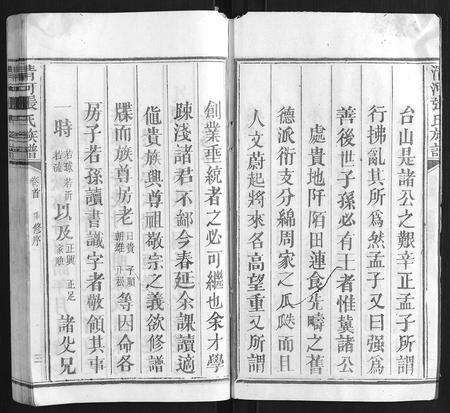 清河張氏族譜
台山是諸公之艱辛正孟子所謂
行拂亂其所為然孟子又曰强為
善後世子孫必有王者惟冀諸公
處貴地阡陌田連食先疇之舊
德派衍支分綿周家之瓜瓞而且
人文蔚起將來名高望重又所謂
創業垂統者之必可繼也余才學
踈淺諸君不鄙今春延余課讀適
值貴族興尊祖敬宗之義欲修譜
牒而族尊房老
日貴 子順
朝雄
等因命各
房子若孫讀書識字者敬領其事
一時
以及
正興 正足
諸父兄
清河張氏族譜
卷首
修序
三